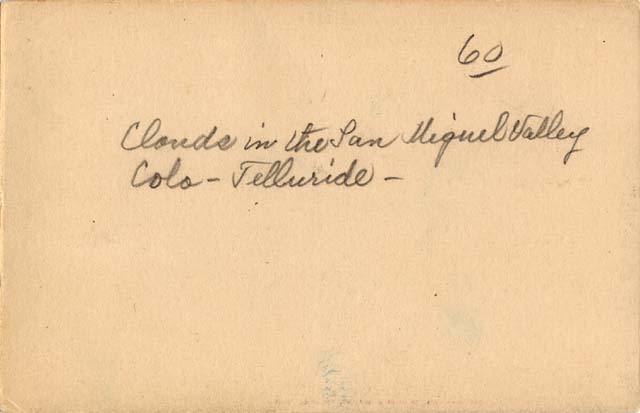 60
Clouds in the San Miguel Valley
Colo - Telluride -